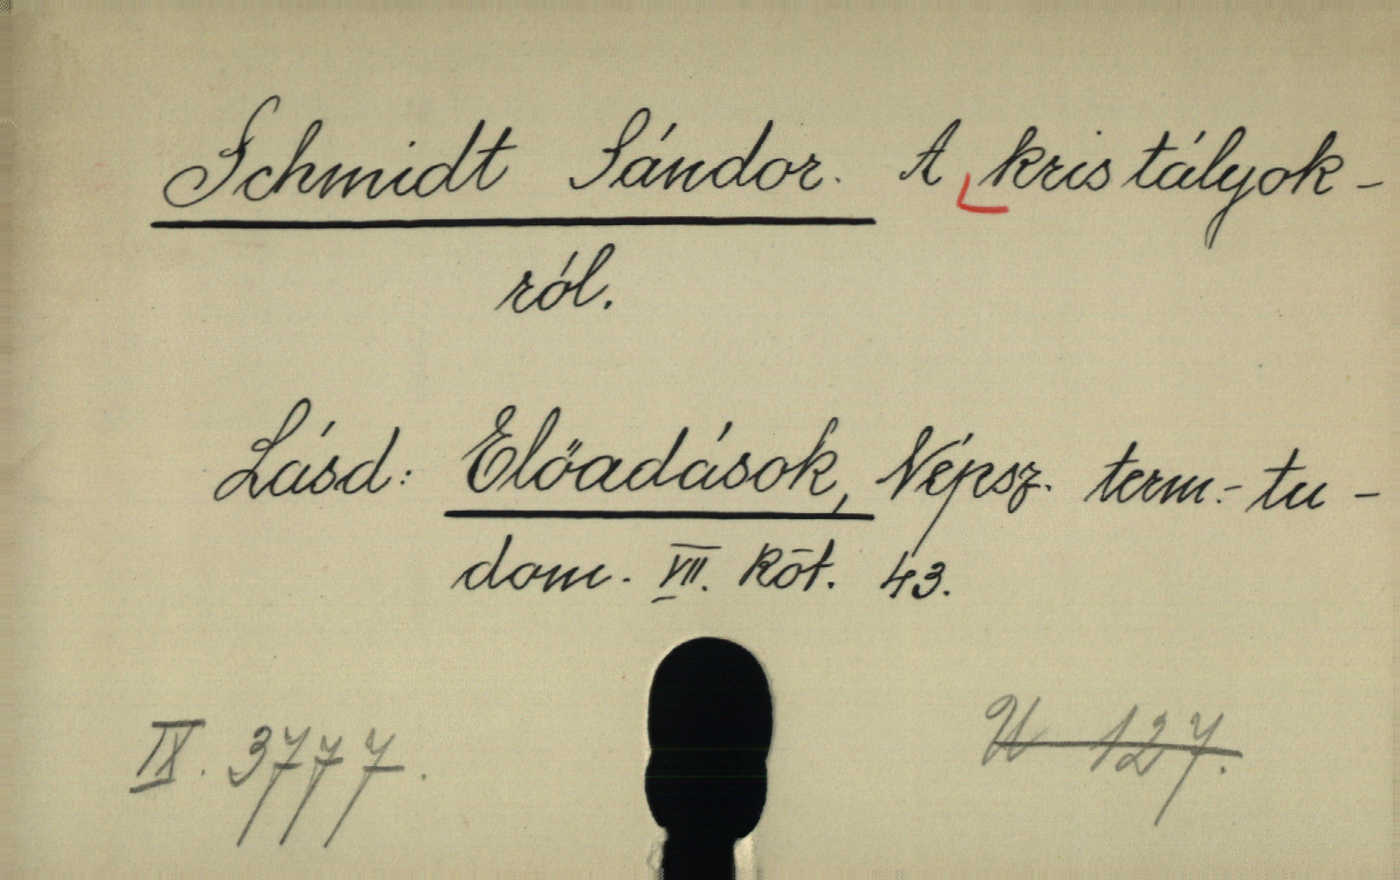 Schmidt Sándor. A kristályok-
ról.
Lásd: Előadások, Népsz. term.-tu-
dom. VII. köt. 43.
IX. 3777.
U 127.